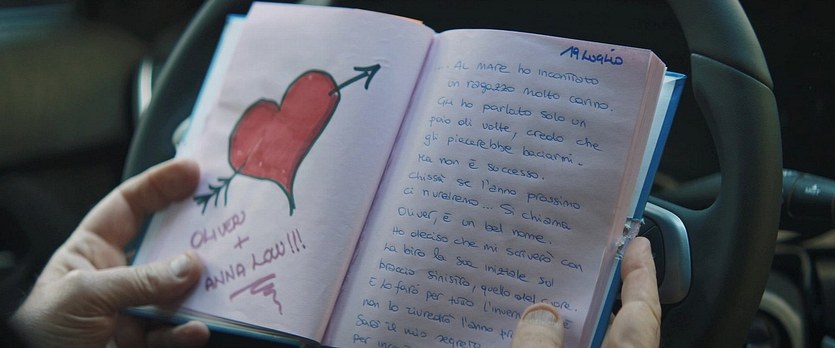 OLIVER
+
ANNA LOU!!!
19 LUGLIO
... AL MARE ho incontrato
un ragazzo molto carino.
Ci ho parlato solo un
paio di volte, credo che
gli piacerebbe baciarmi.
Ma non è successo.
Chissà se l'anno prossimo
ci rivedremo... Si chiama
Oliver, è un bel nome.
Ho deciso che mi scriverò con
la biro la sua iniziale sul
braccio sinistro, quello del cuore.
E lo farò per tutto l'inverno
non lo rivedrò l'anno
Sarà il mio segreto
per